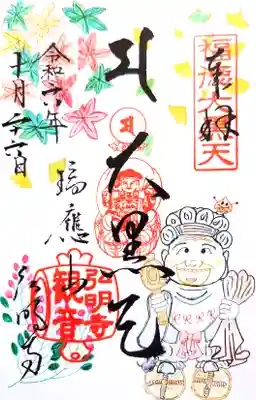 奉拝
福徳大黒天
大黒天
瑞應山
弘明寺
弘明寺
観音
令和六年
十月二十六日